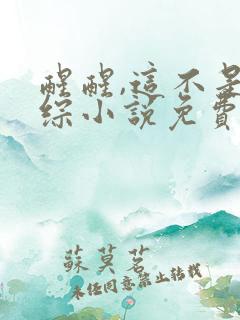 醒醒,這不是
綜小說免費
蘇莫茗
未經同意禁止轉載